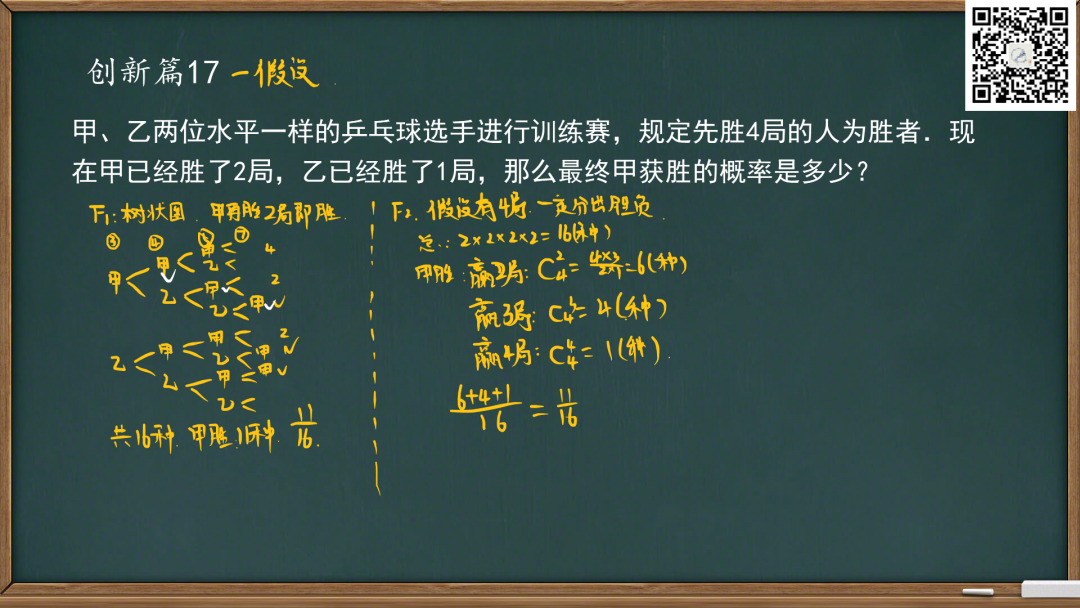 创新篇17 一假设
甲、乙两位水平一样的乒乓球选手进行训练赛，规定先胜4局的人为胜者．现
在甲已经胜了2局，乙已经胜了1局，那么最终甲获胜的概率是多少？
F₁:树状图 甲再胜2局即胜
③ ④ ⑤ ⑦
甲< 甲< 甲< 4
乙<
乙< 甲< 2
乙< 甲
乙< 甲< 甲< 2
乙< 甲
乙< 甲< 甲
乙<
共16种. 甲胜:11种. 11/16.
F₂. 假设有4局. 一定分出胜负
总:: 2×2×2×2=16(种)
甲胜: 赢2局: C₄²=4×3/2×1=6(种)
赢3局: C₄³=4(种)
赢4局: C₄⁴=1(种).
6+4+1/16 = 11/16